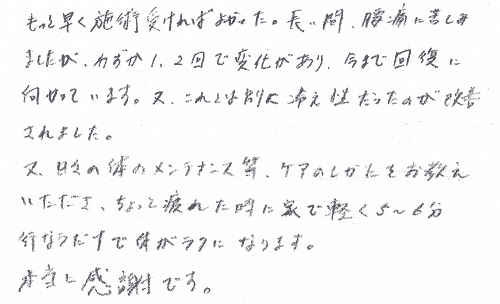 もっと早く施術受ければよかった。長い間、腰痛に苦しみ
ましたが、わずか1、2回で変化があり、今まで回復に
向かっています。又、これとは別に冷え性だったのが改善
されました。
又、日々の体のメンテナンス等、ケアのしかたをお教え
いただき、ちょっと疲れた時に家で軽く5～6分
行なうだけで体がラクになります。
本当に感謝です。